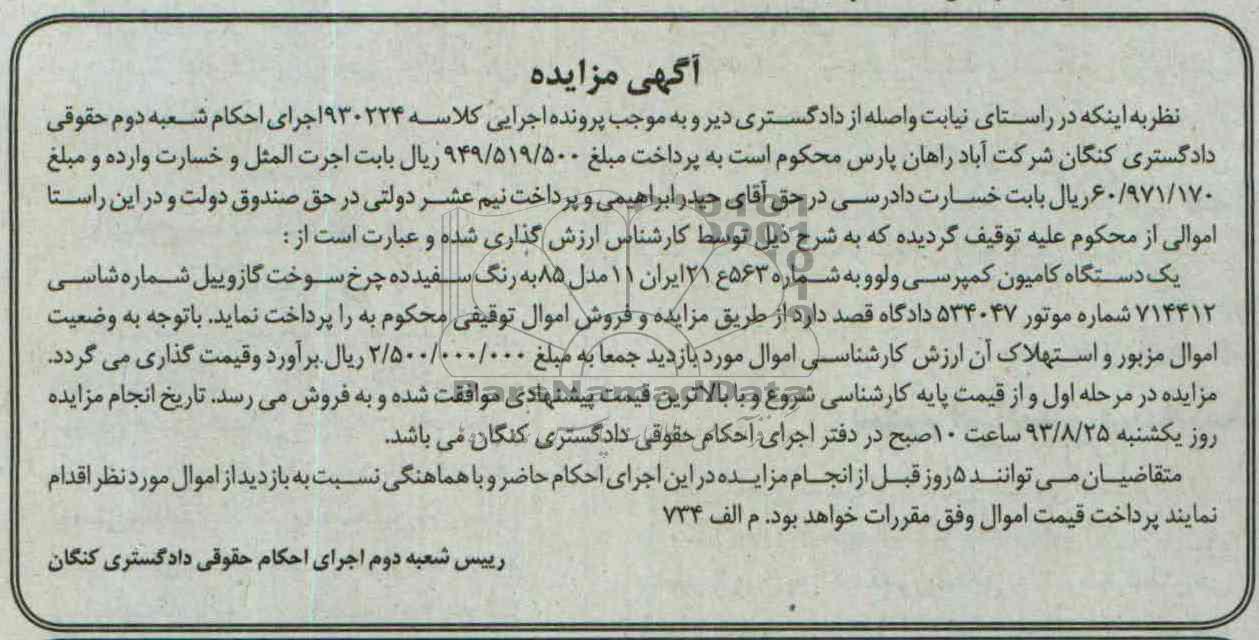 آگهی مزایده
نظربه اینکه در راستای نیابت واصله از دادگستری دیر و به موجب پرونده اجرایی کلاسه ۹۳۰۲۲۴اجرای احکام شعبه دوم حقوقی
دادگستری کنگان شرکت آباد راهان پارس محکوم است به پرداخت مبلغ ۹۴۹/۵۱۹/۵۰۰ ریال بابت اجرت المثل و خسارت وارده و مبلغ
۶۰/۹۷۱/۱۷۰ریال بابت خسارت دادرسی در حق آقای حیدر ابراهیمی و پرداخت نیم عشر دولتی در حق صندوق دولت و در این راستا
اموالی از محکوم علیه توقیف گردیده که به شرح ذیل توسط کارشناس ارزش گذاری شده و عبارت است از :
یک دستگاه کامیون کمپرسی ولوو به شماره ۵۶۳ع۲۱ایران ۱۱ مدل ۸۵به رنگ سفید ده چرخ سوخت گازوییل شماره شاسی
۷۱۴۴۱۲ شماره موتور ۵۳۴۰۴۷ دادگاه قصد دارد از طریق مزایده و فروش اموال توقیفی محکوم به را پرداخت نماید. باتوجه به وضعیت
اموال مزبور و استهلاک آن ارزش کارشناسی اموال مورد بازدید جمعا به مبلغ ۲/۵۰۰/۰۰۰/۰۰۰ ریال برآورد وقیمت گذاری می گردد.
مزایده در مرحله اول و از قیمت پایه کارشناسی شروع و با بالاترین قیمت پیشنهادی موافقت شده و به فروش می رسد. تاریخ انجام مزایده
روز یکشنبه ۹۳/۸/۲۵ ساعت ۱۰صبح در دفتر اجرای احکام حقوقی دادگستری کنگان می باشد.
متقاضیان می توانند ۵روز قبل از انجام مزایده در این اجرای احکام حاضر و با هماهنگی نسبت به بازدید از اموال مورد نظر اقدام
نمایند پرداخت قیمت اموال وفق مقررات خواهد بود. م الف ۷۳۴
رییس شعبه دوم اجرای احکام حقوقی دادگستری کنگان
ParsNamadData